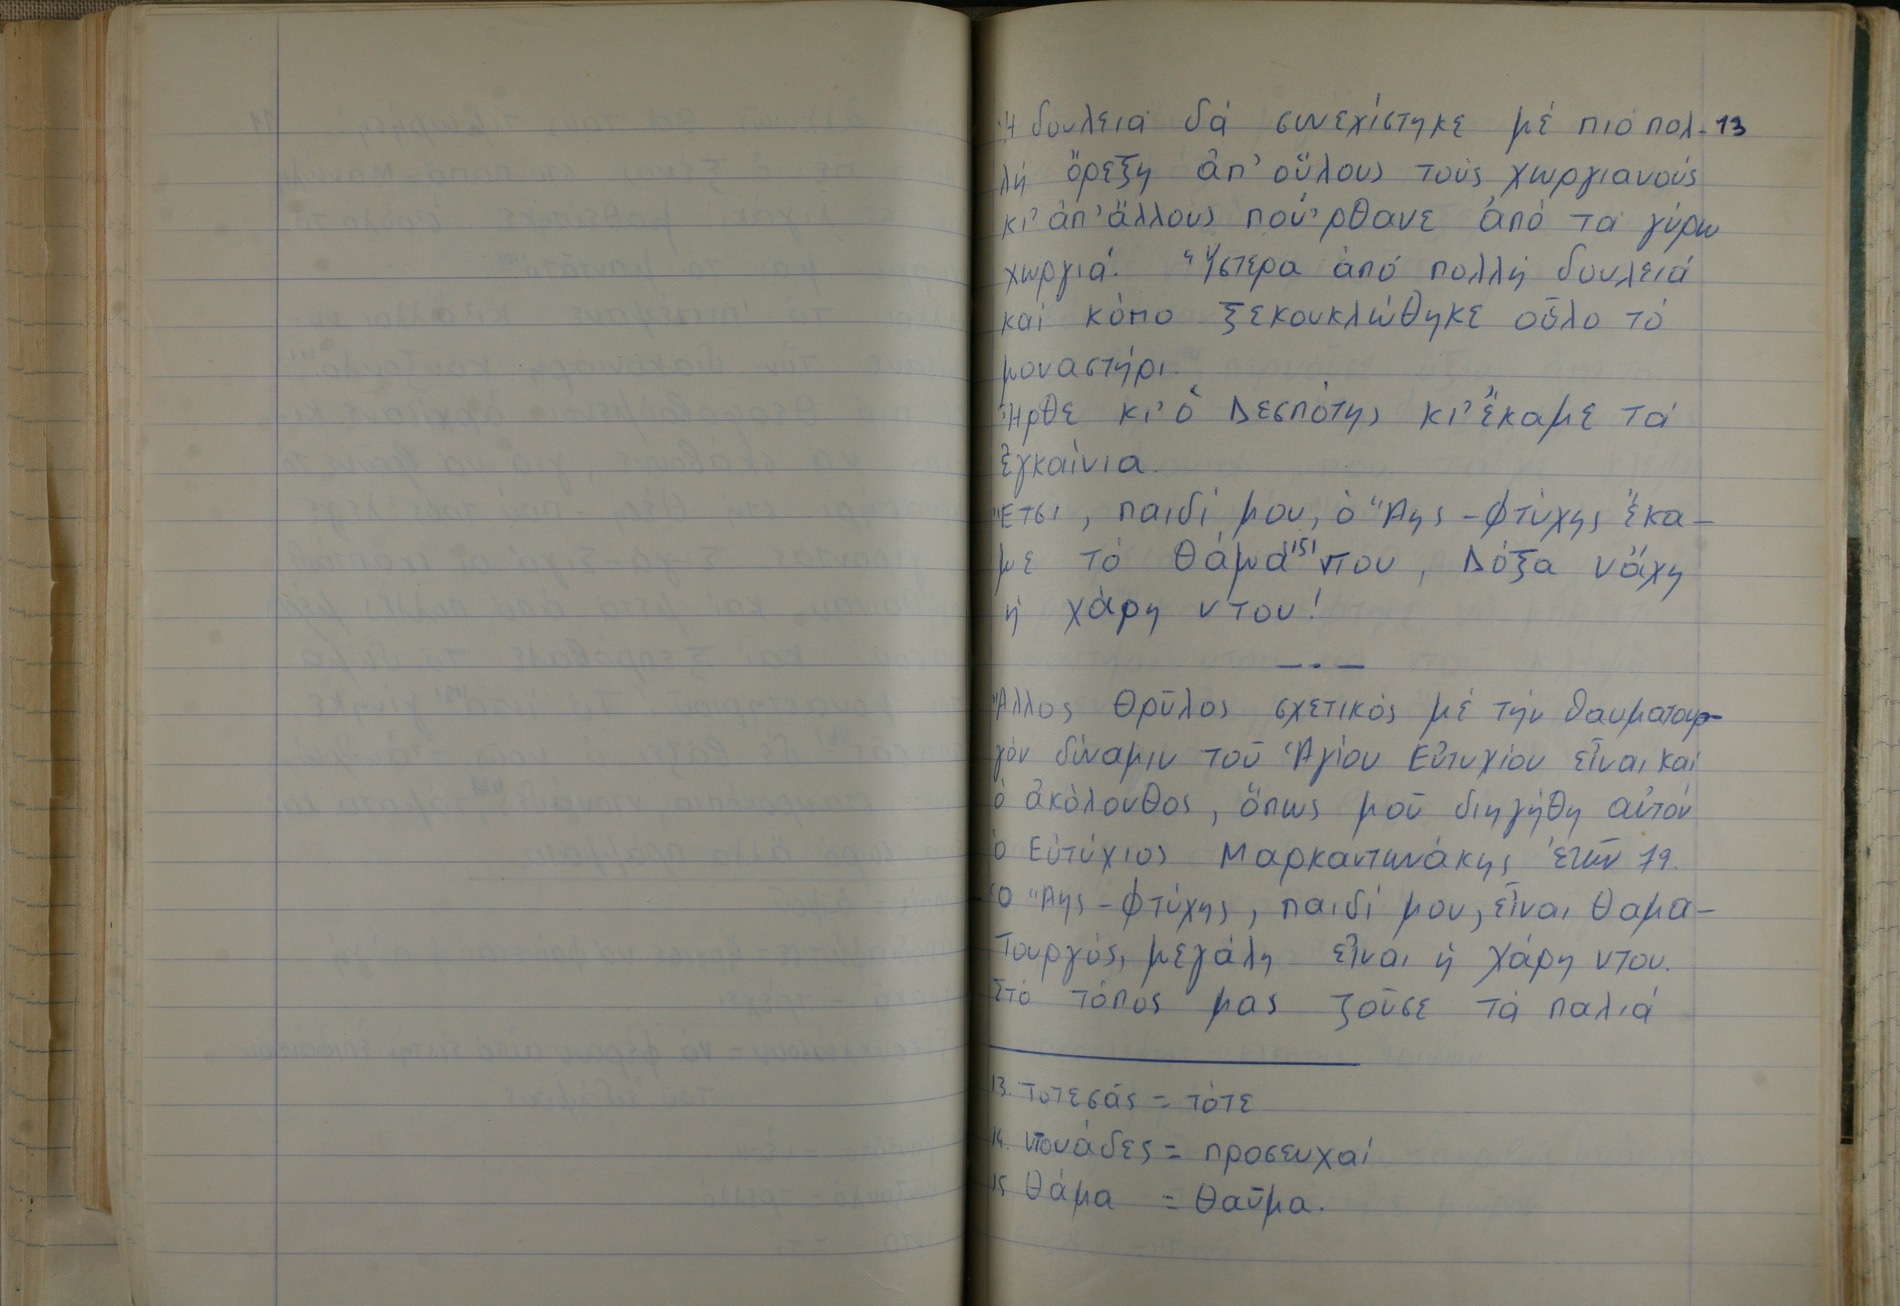 Ἡ δουλειά δά συνεχίστηκε μέ πιό πολ- 13
λή ὄρεξη ἀπ' οὕλους τούς χωργιανούς
κι' ἀπ' ἄλλους πού 'ρθανε ἀπό τά γύρω
χωργιά. Ὕστερα ἀπό πολλή δουλειά
καί κόπο ξεκουκλώθηκε οὗλο τό
μοναστήρι.
Ἦρθε κι' ὁ Δεσπότης κι' ἔκαμε τά
ἐγκαίνια.
Ἔτσι, παιδί μου, ὁ Ἅης - Φτύχης ἔκα-
με τό θάμα 15 ντου, Δόξα νἄχη
ἡ χάρη ντου!
— . —
Ἄλλος θρῦλος σχετικός μέ τήν θαυματουρ-
γόν δύναμιν τοῦ Ἁγίου Εὐτυχίου εἶναι καί
ὁ ἀκόλουθος, ὅπως μοῦ διηγήθη αὐτόν
ὁ Εὐτύχιος Μαρκαντωνάκης ἐτῶν 79.
Ὁ Ἅης - Φτύχης, παιδί μου, εἶναι θαμα-
τουργός, μεγάλη εἶναι ἡ χάρη ντου.
Στό τόπος μας ζοῦσε τά παλιά
13. Τοτεσάς = τότε
14. ντουάδες = προσευχαί
15 θάμα = θαῦμα.